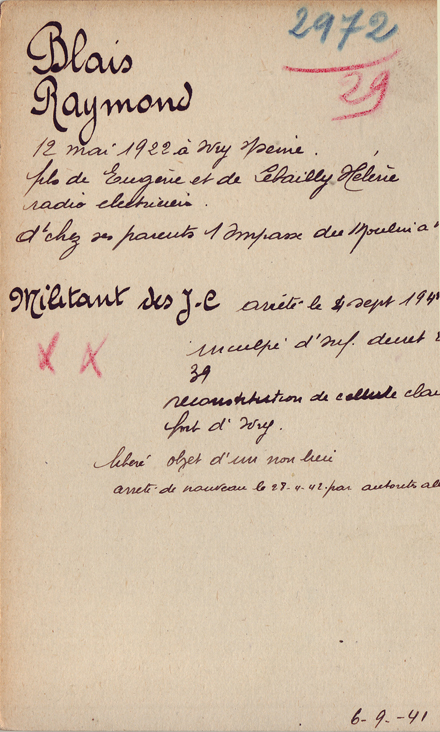 2972
29
Blais
Raymond
12 mai 1922 à Ivry Seine.
fils de Eugène et de Lebailly Hélène
radio electricien.
dt chez ses parents 1 Impasse du Moulin à
Militant des J-C arrêté le 4 sept 194
inculpé d'inf. decret
39
reconstitution de cellule clan
fort d'Ivry.
libéré objet d'un non lieu
arrêté de nouveau le 27-4-42 par autorités all
6-9-41